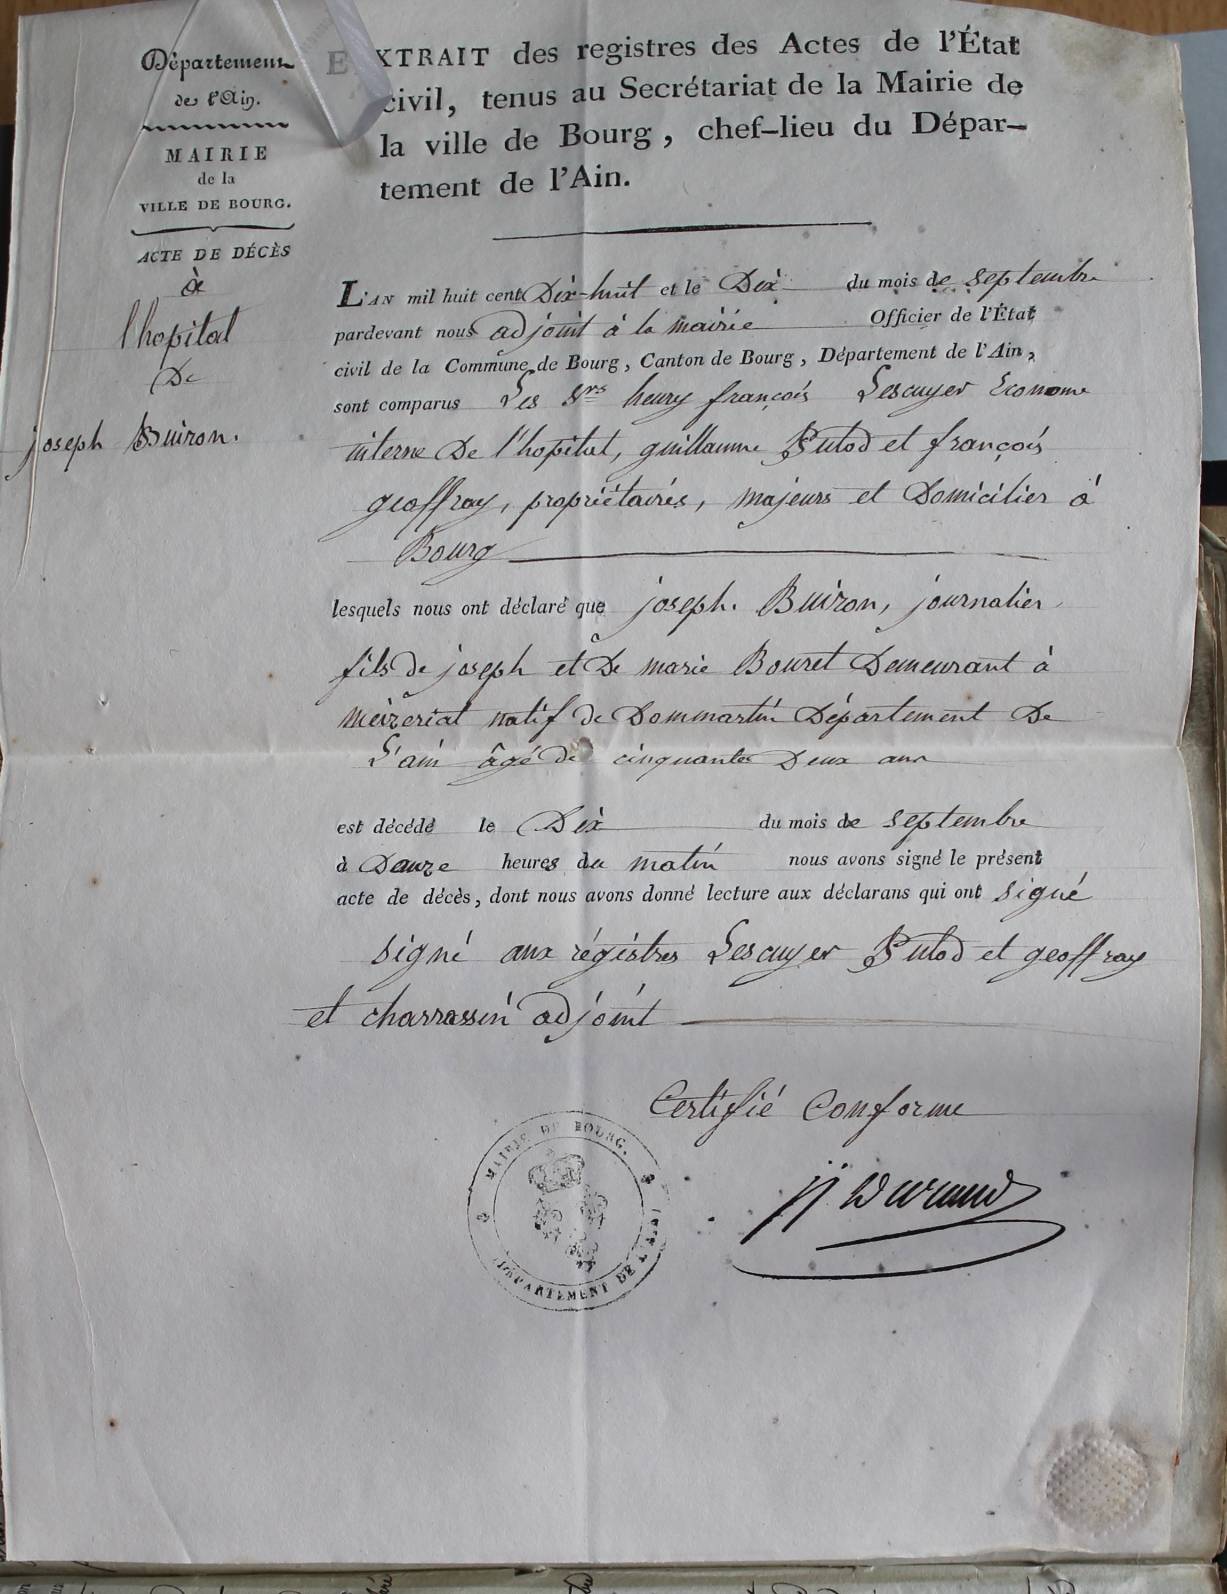 Département
de l'Ain.
MAIRIE
de la
VILLE DE BOURG.
ACTE DE DÉCÈS
à
l'hopital
De
joseph Buiron.
EXTRAIT des registres des Actes de l'État
civil, tenus au Secrétariat de la Mairie de
la ville de Bourg, chef-lieu du Dépar-
tement de l'Ain.
L'AN mil huit cent Dix-huit et le Dix du mois de septembre
pardevant nous adjoint à la mairie Officier de l'État
civil de la Commune de Bourg, Canton de Bourg, Département de l'Ain,
sont comparus Les Srs henry françois Lescuyer Econome
interne De l'hopital, guillaume Putod et françois
geoffray, propriétaires, majeurs et Domicilier à
Bourg
lesquels nous ont déclaré que joseph. Buiron, journalier
fils de joseph et De marie Bouret Demeurant à
meizeriat natif de Dommartin Département De
L'ain âgé de cinquante Deux ans
est décédé le Dix du mois de septembre
à Douze heures du matin nous avons signé le présent
acte de décès, dont nous avons donné lecture aux déclarans qui ont signé
signé aux régistres Lescuyer Putod et geoffray
et charrassin adjoint
Certifié Conforme
MAIRIE DE BOURG.
DÉPARTEMENT DE L'AIN